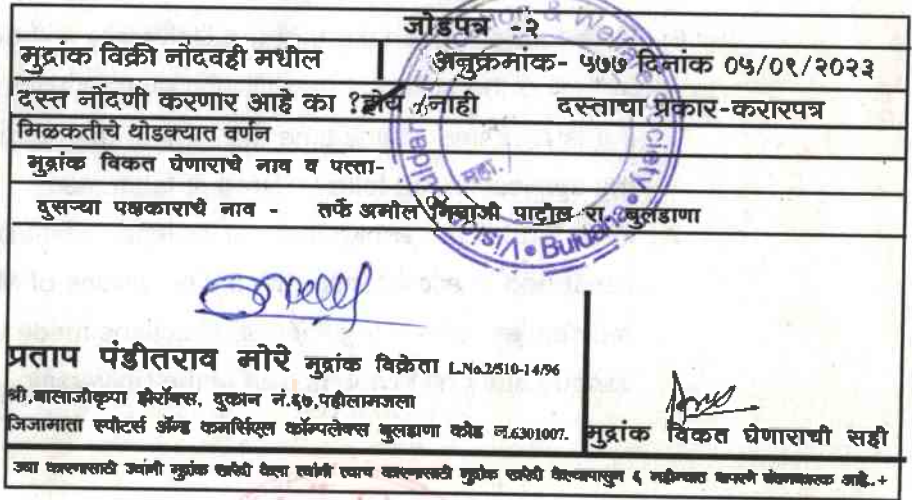 जोडपत्र -२
मुद्रांक विक्री नोंदवही मधील अनुक्रमांक- ५७७ दिनांक ०५/०९/२०२३
दस्त नोंदणी करणार आहे का ? होय / नाही दस्ताचा प्रकार-करारपत्र
मिळकतीचे थोडक्यात वर्णन
मुद्रांक विकत घेणाराचे नाव व पत्ता-
दुसऱ्या पक्षकाराचे नाव - तर्फे अमोल पाटील रा. बुलडाणा
प्रताप पंडीतराव मोरे मुद्रांक विक्रेता L.No.2/510-14/96
श्री.बालाजीकृपा झेरॉक्स, दुकान नं.६७,पहीलामजला
जिजामाता स्पोटर्स ॲन्ड कमर्सिएल कॉम्पलेक्स बुलडाणा कोड नं.6301007.
मुद्रांक विकत घेणाराची सही
ज्या कारणासाठी ज्यांनी मुद्रांक खरेदी केला त्यांनी त्याच कारणासाठी मुद्रांक खरेदी केल्यापासुन ६ महीन्यात वापरणे बंधनकारक आहे..+
& Welfare Society • Buldana • Vision Buldana
महा.